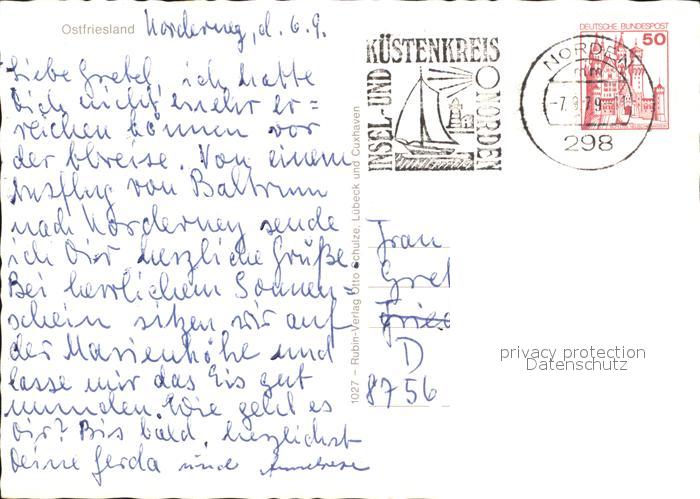 Ostfriesland Norderney, d. 6.9.
Liebe Gretel, ich hatte
Dich nicht mehr er=
reichen können vor
der Abreise. Von einem
Ausflug von Baltrum
nach Norderney sende
ich Dir herzliche Grüße.
Bei herrlichem Sonnen=
schein sitzen wir auf
der Marienhöhe und
lasse mir das Eis gut
munden. Wie geht es
Dir? Bis bald, herzlichst
Deine Gerda und Anneliese
1027 – Rubin-Verlag Otto Schulze, Lübeck und Cuxhaven
INSEL-UND
KÜSTENKREIS
NORDEN
NORDEN
mm
-7.9.79
298
DEUTSCHE BUNDESPOST
50
Frau
Gret
Fried
D
8756
privacy protection
Datenschutz